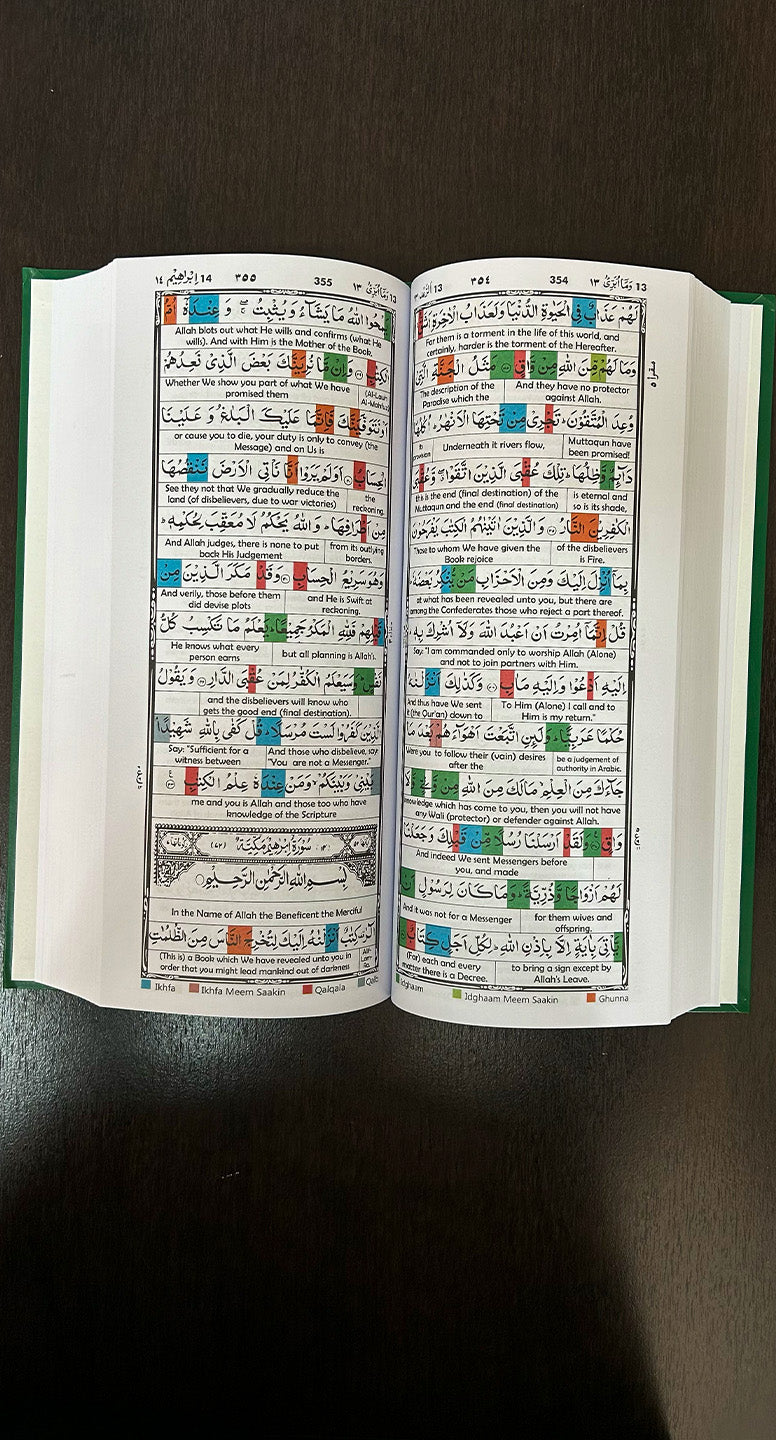 13 وَمَآ اُبَرِّئُ ١٣ 354 ٣٥٤ 13 اَلرَّعْد
لَهُمْ عَذَابٌ فِى الْحَيٰوةِ الدُّنْيَا وَلَعَذَابُ الْاٰخِرَةِ اَشَقُّ
For them is a torment in the life of this world, and
certainly, harder is the torment of the Hereafter.
وَمَا لَهُمْ مِّنَ اللّٰهِ مِنْ وَّاقٍ ۞ مَثَلُ الْجَنَّةِ الَّتِىْ
And they have no protector against Allah.
The description of the Paradise which the
وُعِدَ الْمُتَّقُوْنَ ؕ تَجْرِىْ مِنْ تَحْتِهَا الْاَنْهٰرُ ؕ اُكُلُهَا
Muttaqun have been promised!
Underneath it rivers flow,
its provision
دَآئِمٌ وَّظِلُّهَا ؕ تِلْكَ عُقْبَى الَّذِيْنَ اتَّقَوْا ۖ وَّعُقْبَى
is eternal and so is its shade,
this is the end (final destination) of the
Muttaqun and the end (final destination)
الْكٰفِرِيْنَ النَّارُ ۞ وَالَّذِيْنَ اٰتَيْنٰهُمُ الْكِتٰبَ يَفْرَحُوْنَ
of the disbelievers is Fire.
Those to whom We have given the Book rejoice
بِمَآ اُنْزِلَ اِلَيْكَ وَمِنَ الْاَحْزَابِ مَنْ يُّنْكِرُ بَعْضَهٗ ؕ
at what has been revealed unto you, but there are
among the Confederates those who reject a part thereof.
قُلْ اِنَّمَآ اُمِرْتُ اَنْ اَعْبُدَ اللّٰهَ وَلَآ اُشْرِكَ بِهٖ ؕ
Say: "I am commanded only to worship Allah (Alone)
and not to join partners with Him.
اِلَيْهِ اَدْعُوْا وَاِلَيْهِ مَاٰبِ ۞ وَكَذٰلِكَ اَنْزَلْنٰهُ
To Him (Alone) I call and to Him is my return."
And thus have We sent it (the Qur'an) down to
حُكْمًا عَرَبِيًّا ؕ وَلَئِنِ اتَّبَعْتَ اَهْوَآءَهُمْ بَعْدَ مَا
be a judgement of authority in Arabic.
Were you to follow their (vain) desires after the
جَآءَكَ مِنَ الْعِلْمِ ۙ مَا لَكَ مِنَ اللّٰهِ مِنْ وَّلِىٍّ وَّلَا
knowledge which has come to you, then you will not have
any Wali (protector) or defender against Allah.
وَاقٍ ۞ وَلَقَدْ اَرْسَلْنَا رُسُلًا مِّنْ قَبْلِكَ وَجَعَلْنَا
And indeed We sent Messengers before
you, and made
لَهُمْ اَزْوَاجًا وَّذُرِّيَّةً ؕ وَمَا كَانَ لِرَسُوْلٍ اَنْ
for them wives and offspring.
And it was not for a Messenger
يَّاْتِىَ بِاٰيَةٍ اِلَّا بِاِذْنِ اللّٰهِ ؕ لِكُلِّ اَجَلٍ كِتَابٌ
to bring a sign except by Allah's Leave.
(For) each and every matter there is a Decree.
Idghaam Idghaam Meem Saakin Ghunna
13 وَمَآ اُبَرِّئُ ١٣ 355 ٣٥٥ 14 اِبْرٰهِيْم ١٤
يَمْحُوا اللّٰهُ مَا يَشَآءُ وَيُثْبِتُ ۖ وَعِنْدَهٗٓ اُمُّ
Allah blots out what He wills and confirms (what He
wills). And with Him is the Mother of the Book.
الْكِتٰبِ ۞ وَاِنْ مَّا نُرِيَنَّكَ بَعْضَ الَّذِىْ نَعِدُهُمْ
(Al-Lauh Al-Mahfuz)
Whether We show you part of what We have
promised them
اَوْ نَتَوَفَّيَنَّكَ فَاِنَّمَا عَلَيْكَ الْبَلٰغُ وَعَلَيْنَا
or cause you to die, your duty is only to convey (the
Message) and on Us is
الْحِسَابُ ۞ اَوَلَمْ يَرَوْا اَنَّا نَاْتِى الْاَرْضَ نَنْقُصُهَا
the reckoning.
See they not that We gradually reduce the
land (of disbelievers, due to war victories)
مِنْ اَطْرَافِهَا ؕ وَاللّٰهُ يَحْكُمُ لَا مُعَقِّبَ لِحُكْمِهٖ ؕ
from its outlying borders.
And Allah judges, there is none to put
back His Judgement
وَهُوَ سَرِيْعُ الْحِسَابِ ۞ وَقَدْ مَكَرَ الَّذِيْنَ مِنْ
and He is Swift at reckoning.
And verily, those before them
did devise plots
قَبْلِهِمْ فَلِلّٰهِ الْمَكْرُ جَمِيْعًا ؕ يَعْلَمُ مَا تَكْسِبُ كُلُّ
but all planning is Allah's.
He knows what every person earns
نَفْسٍ ؕ وَسَيَعْلَمُ الْكُفّٰرُ لِمَنْ عُقْبَى الدَّارِ ۞ وَيَقُوْلُ
and the disbelievers will know who
gets the good end (final destination).
الَّذِيْنَ كَفَرُوْا لَسْتَ مُرْسَلًا ؕ قُلْ كَفٰى بِاللّٰهِ شَهِيْدًۢا
And those who disbelieve, say: "You are not a Messenger."
Say: "Sufficient for a witness between
بَيْنِىْ وَبَيْنَكُمْ ۙ وَمَنْ عِنْدَهٗ عِلْمُ الْكِتٰبِ ۞
me and you is Allah and those too who have
knowledge of the Scripture
سُوْرَةُ اِبْرٰهِيْمَ مَكِّيَّةٌ
بِسْمِ اللّٰهِ الرَّحْمٰنِ الرَّحِيْمِ
In the Name of Allah the Beneficent the Merciful
الٓرٰ ۟ كِتٰبٌ اَنْزَلْنٰهُ اِلَيْكَ لِتُخْرِجَ النَّاسَ مِنَ الظُّلُمٰتِ
Alif-Lam-Ra.
(This is) a Book which We have revealed unto you in
order that you might lead mankind out of darkness
Ikhfa Ikhfa Meem Saakin Qalqala Qalb